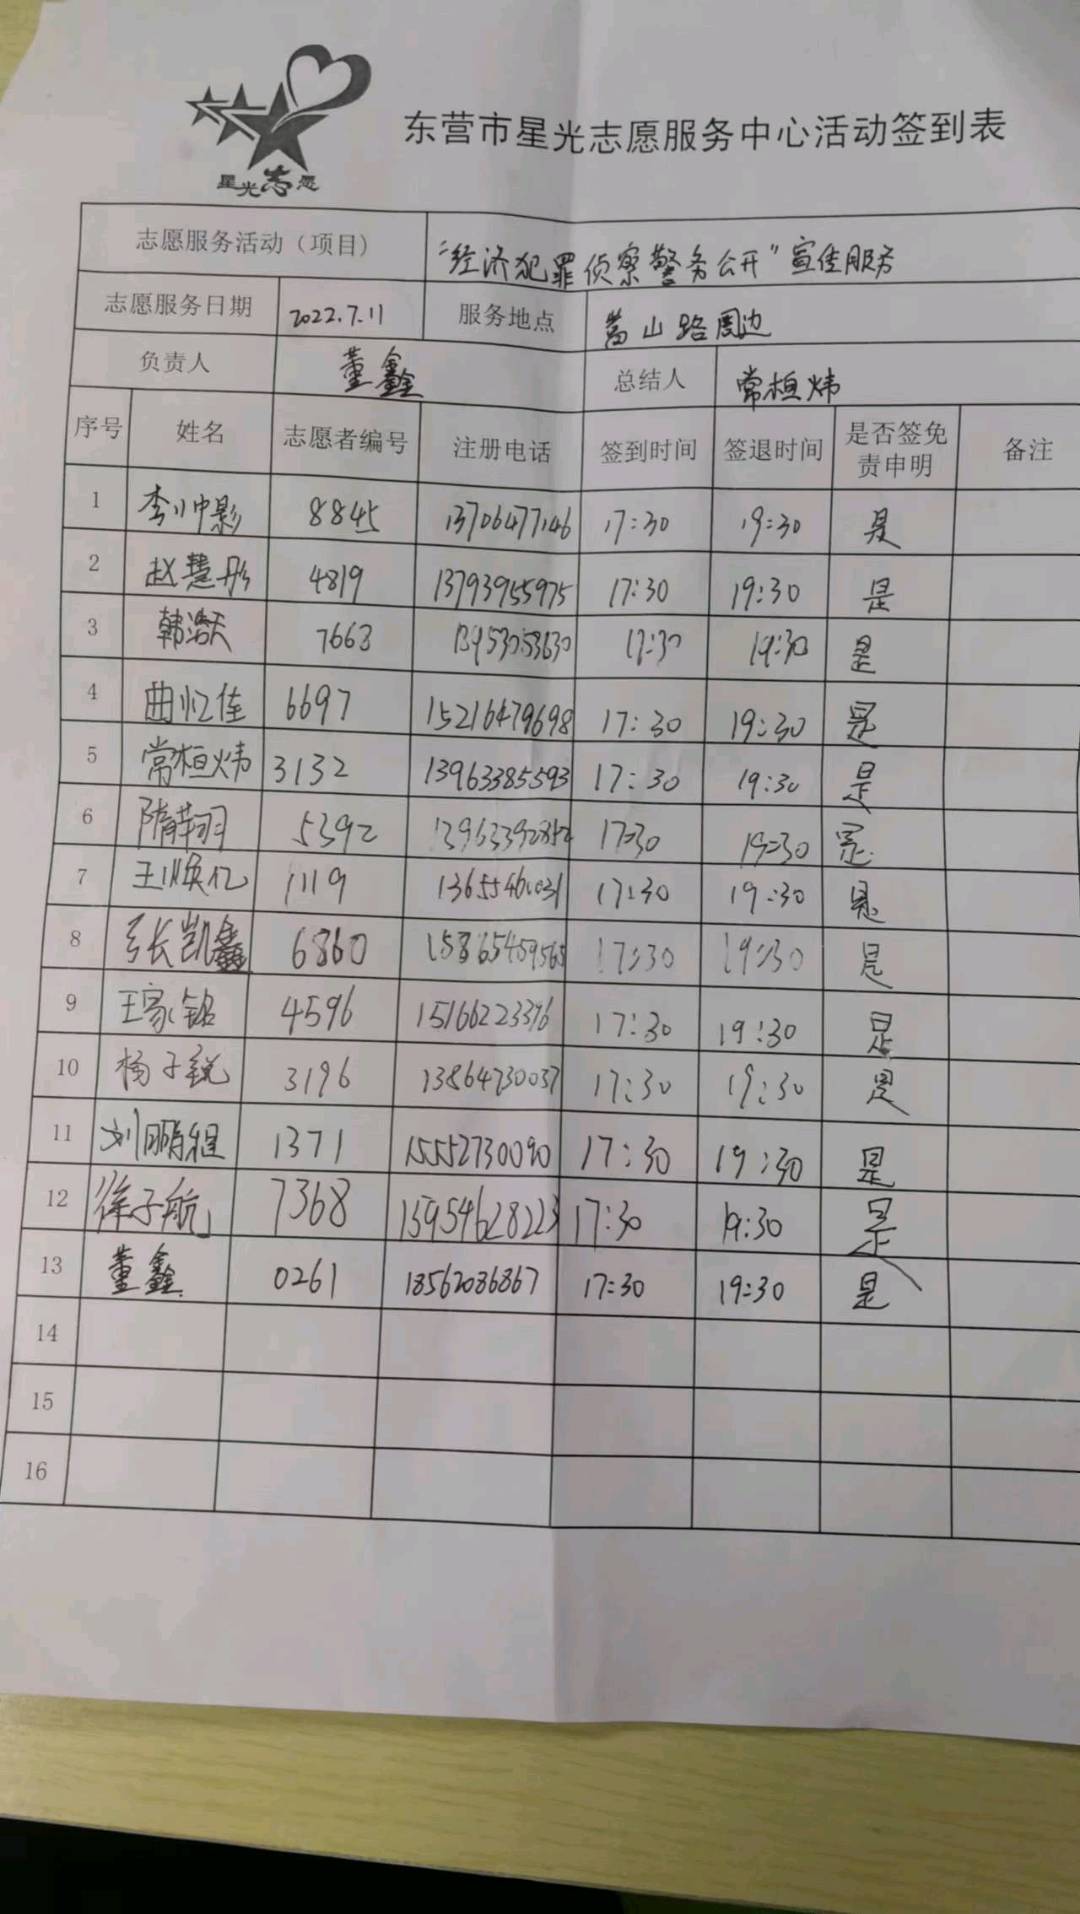 星光志愿
东营市星光志愿服务中心活动签到表
志愿服务活动（项目） “经济犯罪侦察警务公开”宣传服务
志愿服务日期 2022.7.11 服务地点 嵩山路周边
负责人 董鑫 总结人 常桓炜
序号 姓名 志愿者编号 注册电话 签到时间 签退时间 是否签免责申明 备注
1 8845 13706477146 17:30 19:30 是
2 赵慧彤 4819 13793955975 17:30 19:30 是
3 韩浩天 7663 17:30 19:30 是
4 曲忆佳 6697 15216479698 17:30 19:30 是
5 常桓炜 3132 13963385593 17:30 19:30 是
6 5392 17:30 19:30 是
7 1119 17:30 19:30 是
8 张凯鑫 6860 17:30 19:30 是
9 王家铭 4596 15166223376 17:30 19:30 是
10 杨子锐 3196 13864730037 17:30 19:30 是
11 1371 15552730090 17:30 19:30 是
12 徐子航 7368 15954628223 17:30 19:30 是
13 董鑫 0261 18562086867 17:30 19:30 是
14
15
16